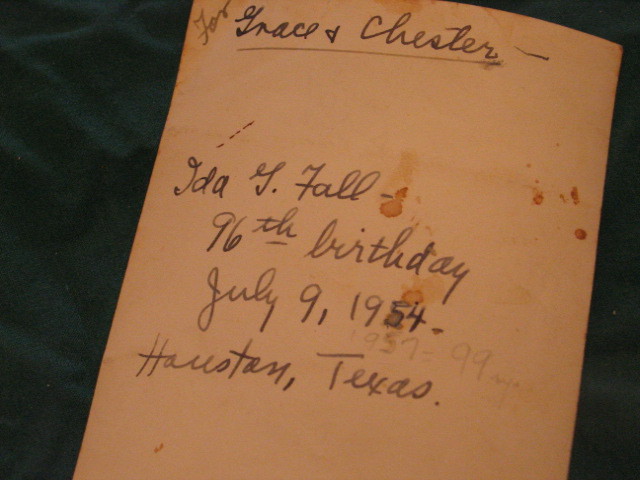 For Grace & Chester —
Ida G. Fall -
96th birthday
July 9, 1954 -
1957 = 99 yrs.
Houston, Texas.